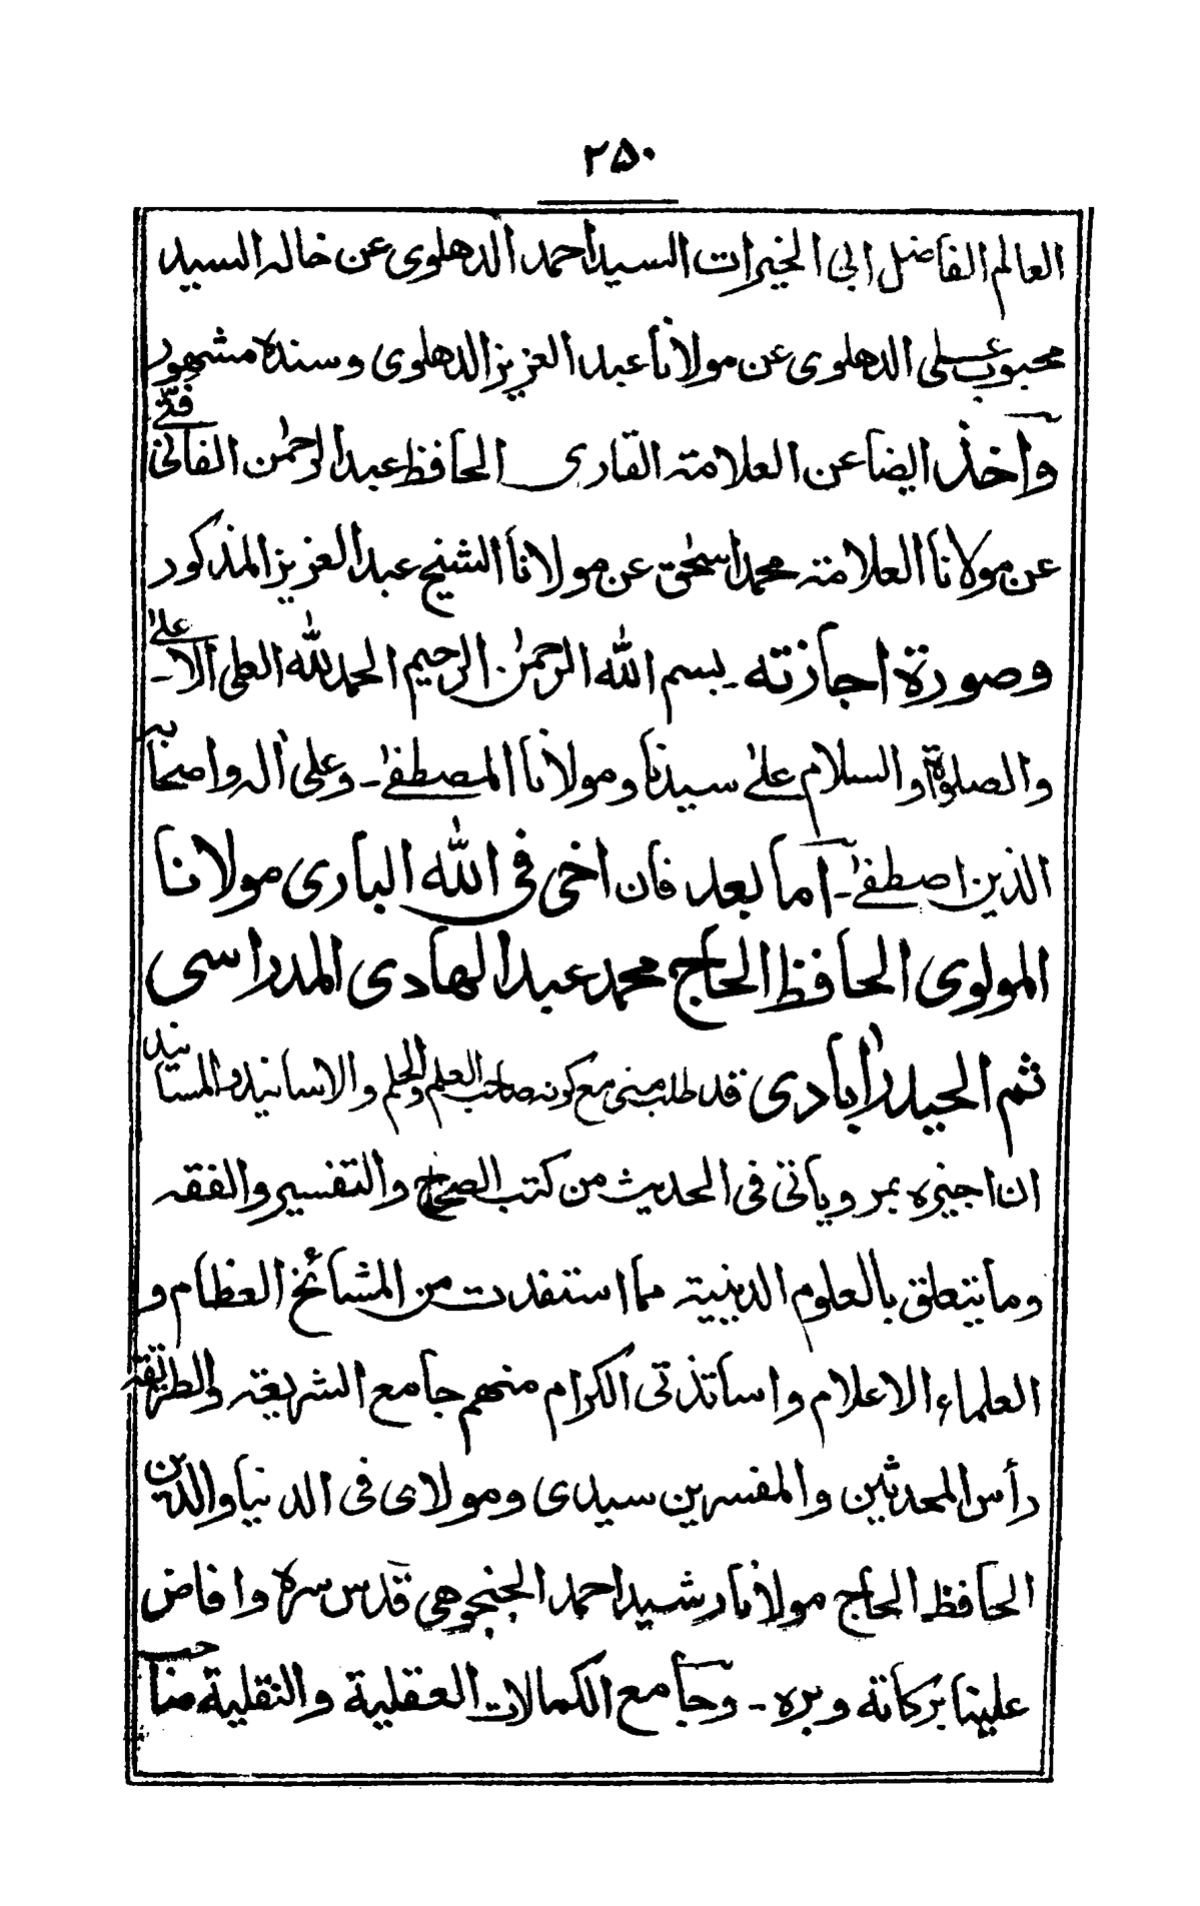 ۲۵۰
العالم الفاضل ابی الخیرات السید احمد الدهلوی عن خاله السید
محبوب علی الدهلوی عن مولانا عبد العزیز الدهلوی وسنده مشهور
وآخذ ایضا عن العلامة القاری الحافظ عبد الرحمٰن الفانی فتی
عن مولانا العلامة محمد اسحٰق عن مولانا الشیخ عبد العزیز المذکور
وصورة اجازته - بسم الله الرحمٰن الرحیم الحمد لله العلی الاعلیٰ -
والصلوٰة والسلام علیٰ سیدنا ومولانا المصطفیٰ - وعلی اٰله واصحابه
الذین اصطفیٰ - آما بعد فان اخی فی الله الباری مولانا
المولوی الحافظ الحاج محمد عبد الهادی المدراسی
ثم الحیدرآبادی قد طلب منی مع کونه صاحب العلم والحلم والاسانید والمسانید
ان اجیزه بمرویاتی فی الحدیث من کتب الصحاح والتفسیر والفقه
وما یتعلق بالعلوم الدینیة مما استفدت من المشائخ العظام و
العلماء الاعلام واساتذتی الکرام منهم جامع الشریعة والطریقة
رأس المحدثین والمفسرین سیدی ومولای فی الدنیا والدین
الحافظ الحاج مولانا رشید احمد الجنجوهی قدس سره وافاض
علینا برکاته وبره - وجامع الکمالات العقلیة والنقلیة صاحب